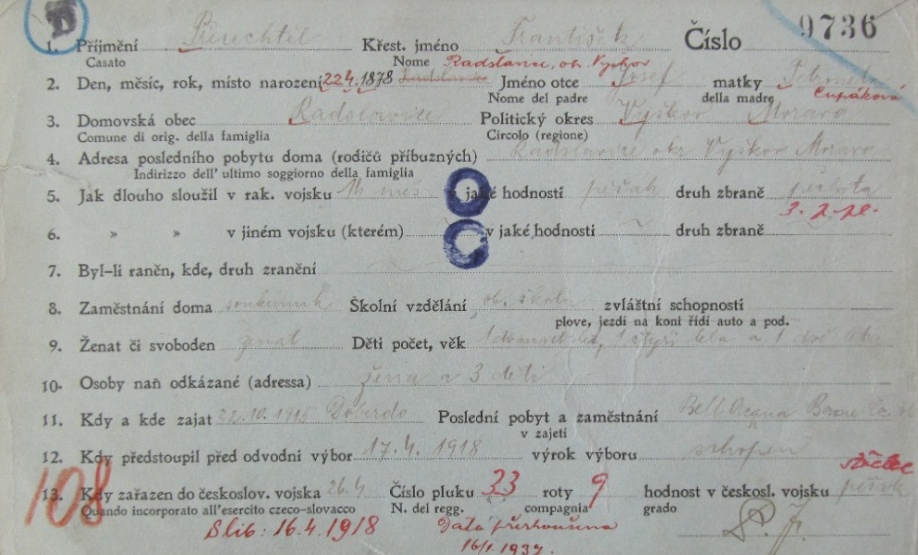 9736
1. Příjmení Přerechtěl Křest. jméno František Číslo
Casato Nome Radslavic, ob. Vyškov
2. Den, měsíc, rok, místo narození 22.4.1878 Jméno otce Josef matky Petronela
Nome del padre della madre Cupáková
3. Domovská obec Radslavice Politický okres Vyškov Morava
Comune di orig. della famiglia Circolo (regione)
4. Adresa posledního pobytu doma (rodičů příbuzných) Radslavice okr Vyškov Morava
Indirizzo dell' ultimo soggiorno della famiglia
5. Jak dlouho sloužil v rak. vojsku v jaké hodnosti pěšák druh zbraně pěchota
3. p. pl.
6. » » v jiném vojsku (kterém) v jaké hodnosti druh zbraně
7. Byl-li raněn, kde, druh zranění
8. Zaměstnání doma soukenník Školní vzdělání ob. škola zvláštní schopnosti
plove, jezdí na koni řídí auto a pod.
9. Ženat či svoboden ženat Děti počet, věk
10. Osoby naň odkázané (adressa) žena a 3 děti
11. Kdy a kde zajat 22.10.1915 Doberdo Poslední pobyt a zaměstnání
v zajetí
12. Kdy předstoupil před odvodní výbor 17.4.1918 výrok výboru schopen
střelec
108
13. Kdy zařazen do českoslov. vojska 26.4 Číslo pluku 33 roty 9 hodnost v českosl. vojsku pěšák
Quando incorporato all'esercito czeco-slovacco N. del regg. compagnia grado
Slib: 16.4.1918 Data přezkoušena
16/1. 1937.